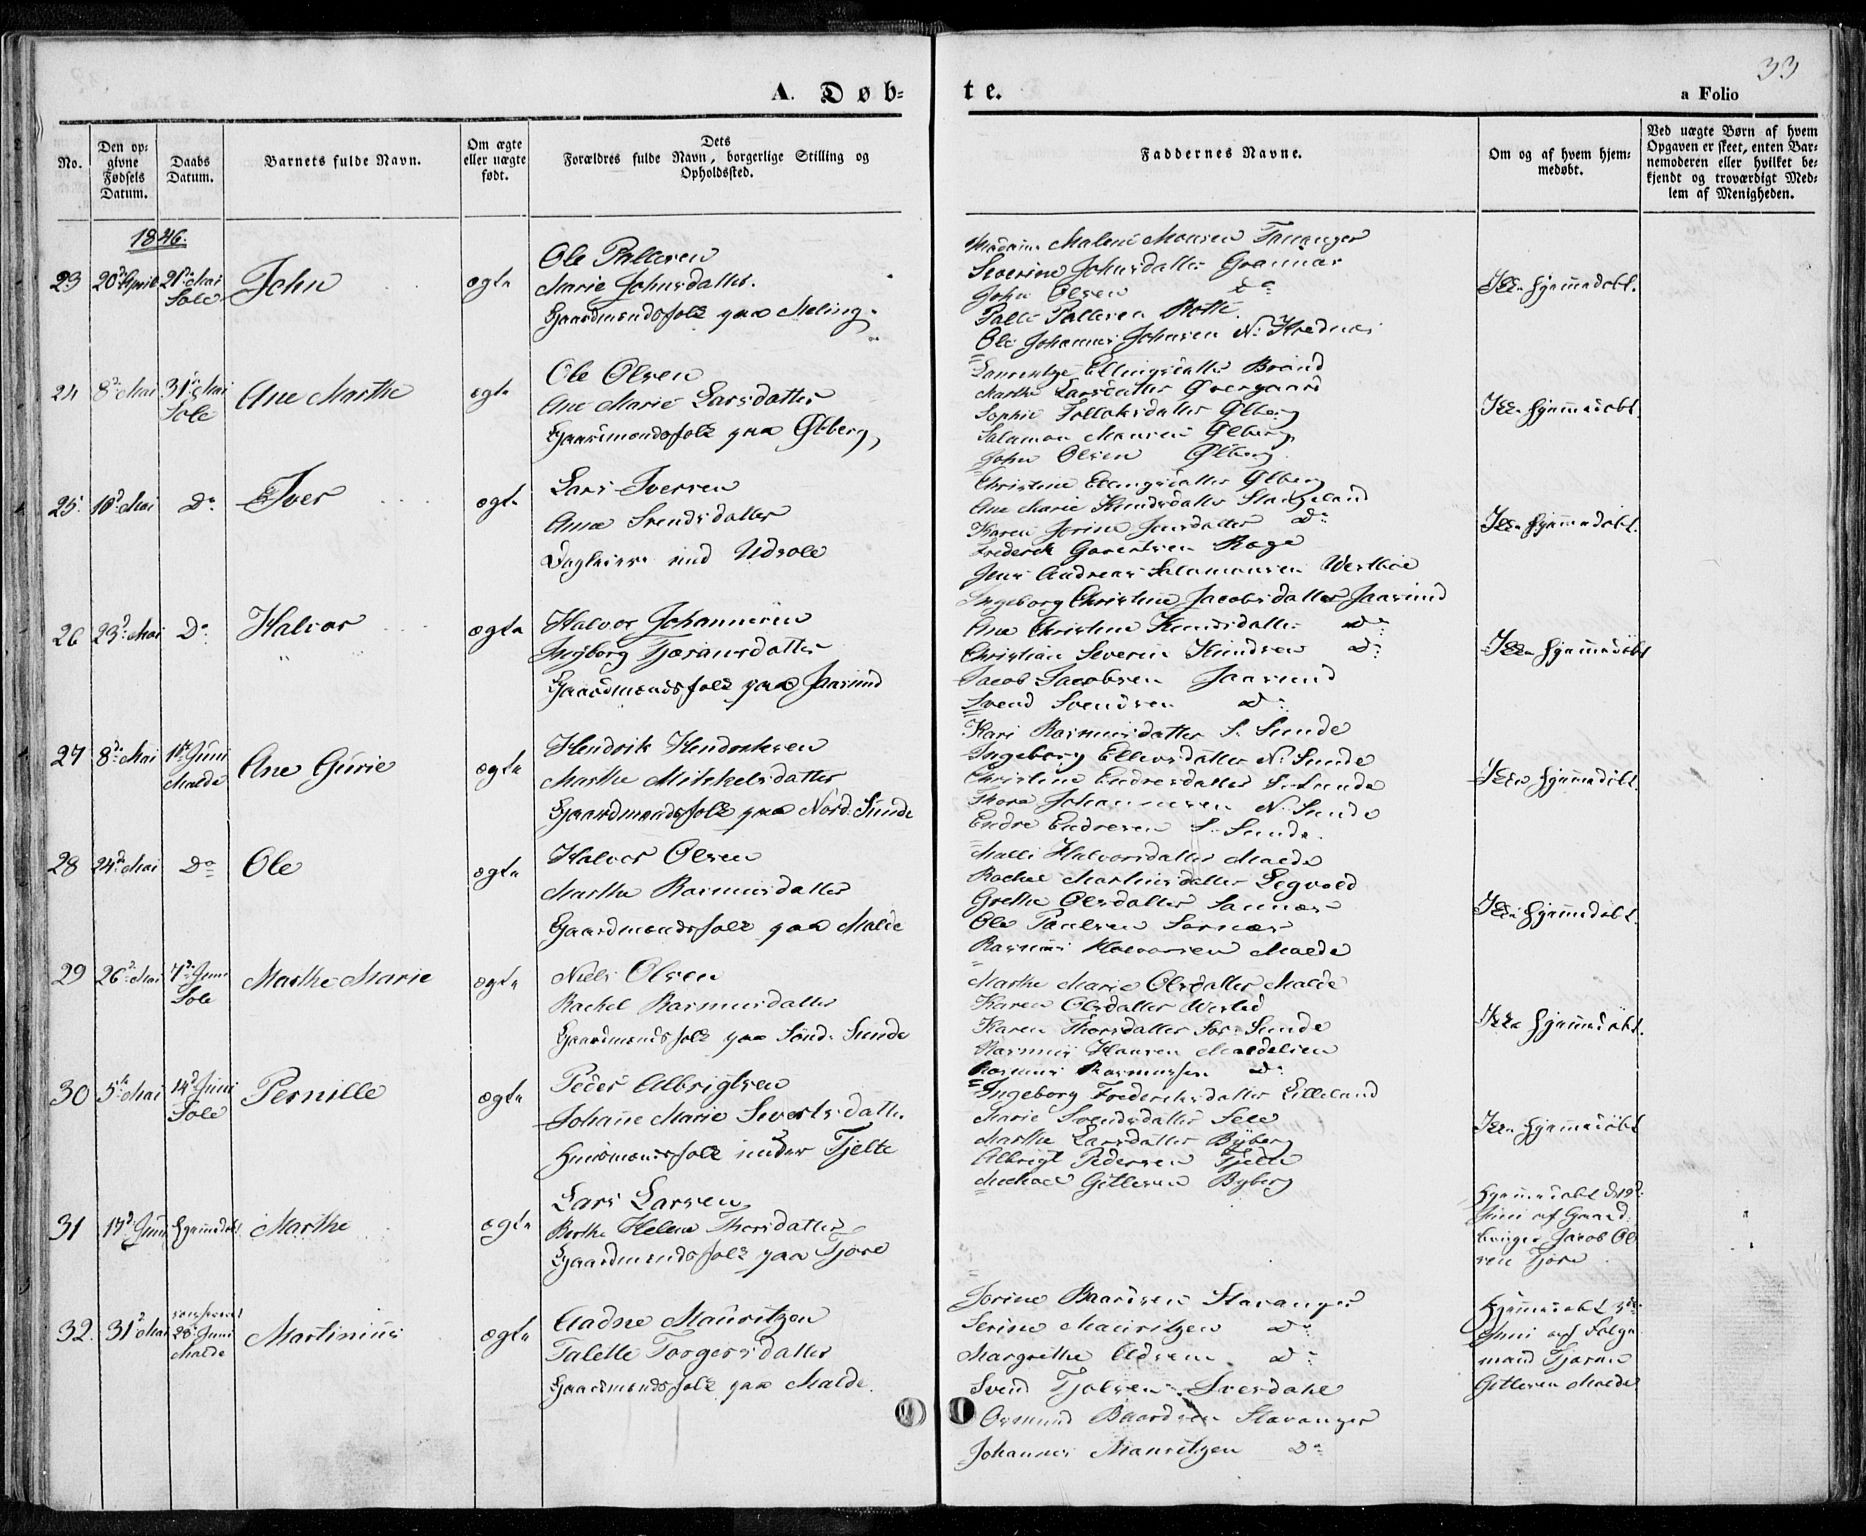 33
A. Døb-
te.
a Folio
No.
Den op-
givne
Fødsels
Datum.
Daabs
Datum.
Barnets fulde Navn.
Om ægte
eller uægte
født.
Dets
Forældres fulde Navn, borgerlige Stilling og
Opholdssted.
Faddernes Navne.
Om og af hvem hjem-
medøbt.
Ved uægte Børn af hvem
Opgaven er skeet, enten Bar-
nemoderen eller hvilket be-
kjendt og troværdigt Med-
lem af Menigheden.
1846.
23 20d April 21de Mai
Sole
John
ægte
Ole Pallesen
Marie Johnsdatter
Gaardmandsfolk paa Meling.
Madame Malene Monsen Tananger
Severine Johnsdatter Grannæs
John Olsen do
Palle Pallesen Rotte
Ole Johannes Johnsen N. Hvednæs
Ikke hjemmedøbt.
24 8d Mai 31d Mai
Sole
Ane Marthe
ægte
Ole Olsen
Ane Marie Larsdatter
Gaardmandsfolk paa Ølberg,
Ellingsdatter
Marthe Larsdatter
Sophie Ølberg
Salamon Monsen Ølberg
John Olsen Ølberg
Ikke hjemmedøbt
25 10d Mai Do
Iver
ægte
Lars Iversen
Anna Svendsdatter
Udsole
Christine Ellingsdatter Ølberg
Ane Marie Knudsdatter Stangeland
Karen Jorine Jensdatter do
Frederik Rage
Jens Andreas Salamonsen
Ikke hjemmedøbt.
26 23d Mai Do
Halvor
ægte
Halvor Johannesen
Ingborg Tjæransdatter
Gaardmandsfolk paa Jaasund
Ingeborg Christine Jacobsdatter Jaasund
Ane Christine Knudsdatter do
Christian Severin Knudsen do
Jacob Jacobsen Jaasund
Svend Svendsen do
Ikke hjemmedøbt
27 8d Mai 1ste Juni
Malde
Ane Gurie
ægte
Hendrik Hendriksen
Marthe Mikkelsdatter
Gaardmandsfolk paa Nord. Sunde
Kari Rasmusdatter S. Sunde
Ingeborg N. Sunde
Christine Endresdatter S. Sunde
Thore Johannesen N. Sunde
Endre Endresen S. Sunde.
Ikke hjemmedøbt.
28 24d Mai Do
Ole
ægte
Halvor Olsen
Marthe Rasmusdatter
Gaardmandsfolk paa Malde
Malli Halvorsdatter Malde
Rachel Martinsdatter
Grethe Olsdatter
Ole Paulsen
Rasmus Halvorsen Malde
Ikke hjemmedøbt.
29 26d Mai 7d Juni
Sole
Marthe Marie
ægte
Niels Olsen
Rachel Rasmusdatter
Gaardmandsfolk paa Sønd. Sunde
Marthe Marie Olsdatter Malde
Karen Olsdatter
Karen Thorsdatter Sør. Sunde
Rasmus Hansen
Rasmus Rasmussen do
Ikke hjemmedøbt.
30 5te Mai 14d Juni
Sole
Pernille
ægte
Peder Albrigtsen
Johanne Marie Sivertsdatter
Huusmandsfolk under Tjelte
Ingeborg Frederiksdatter Lilleland
Marie Svendsdatter Sele
Marthe Larsdatter Byberg
Albrigt Pedersen Tjelte
Michael Gitlesen Byberg
Ikke hjemmedøbt
31 17d Juni Hjemmedøbt
Marthe
ægte
Lars Larsen
Berthe Helene Thorsdatter
Gaardmandsfolk paa Tjøre
Hjemmedøbt d. 19d
Juni af Gaard
bruger Jacob Ol
sen Tjøre
32. 31d Mai
28d Juni
Malde
Martinius
ægte
Aadne Mauritzen
Talette Torgersdatter
Gaardmandsfolk paa Malde.
Jorine Baardsen Stavanger
Serine Mauritzen do
Margrethe do
Svend
Osmund Baardsen Stavanger
Johannes Mauritzen do
Hjemmedøbt 3die
Juni af Følge
mand Tjøran
Gitlesen Malde